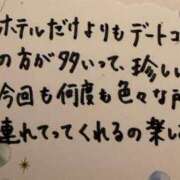 ホテルだけよりもデートコ
の方が多いって、珍しい
今回も何度も色々な所
連れてってくれるの楽し